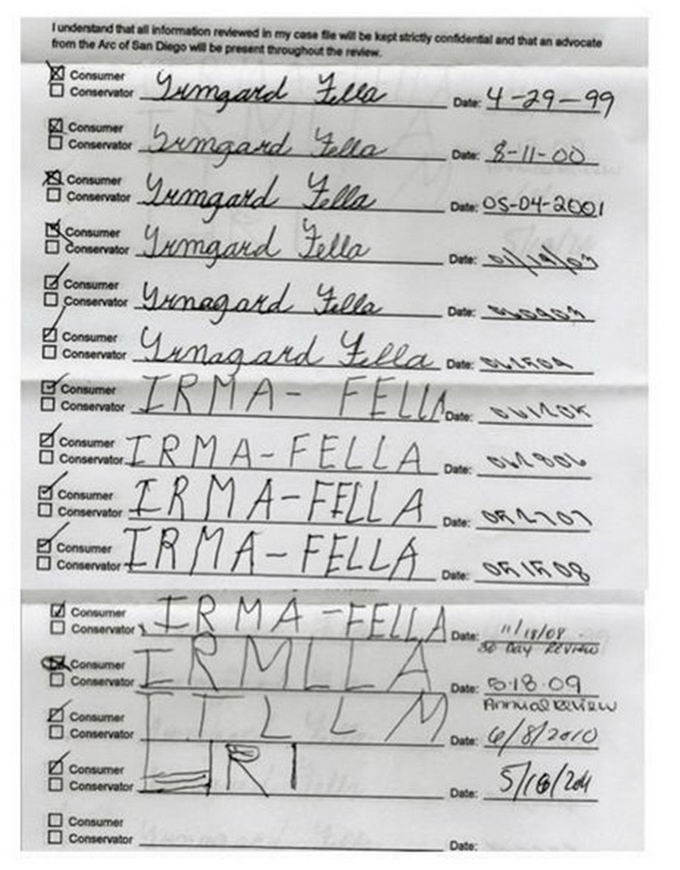 I understand that all information reviewed in my case file will be kept strictly confidential and that an advocate
from the Arc of San Diego will be present throughout the review.
Consumer
Conservator Yrmgard Fella Date: 4-29-99
Consumer
Conservator Yrmgard Fella Date: 8-11-00
Consumer
Conservator Yrmgard Fella Date: 05-04-2001
Consumer
Conservator Yrmgard Fella Date:
Consumer
Conservator Yrnagard Fella Date:
Consumer
Conservator Yrnagard Fella Date:
Consumer
Conservator IRMA- FELLA Date:
Consumer
Conservator IRMA-FELLA Date: 061806
Consumer
Conservator IRMA-FELLA Date: 052707
Consumer
Conservator IRMA-FELLA Date: 051508
Consumer
Conservator IRMA-FELLA Date: 11/18/08
30 Day Review
Consumer
Conservator IRMLLA Date: 5.18.09
Annual Review
Consumer
Conservator ITLLM Date: 6/8/2010
Consumer
Conservator Date:
Consumer
Conservator Date: